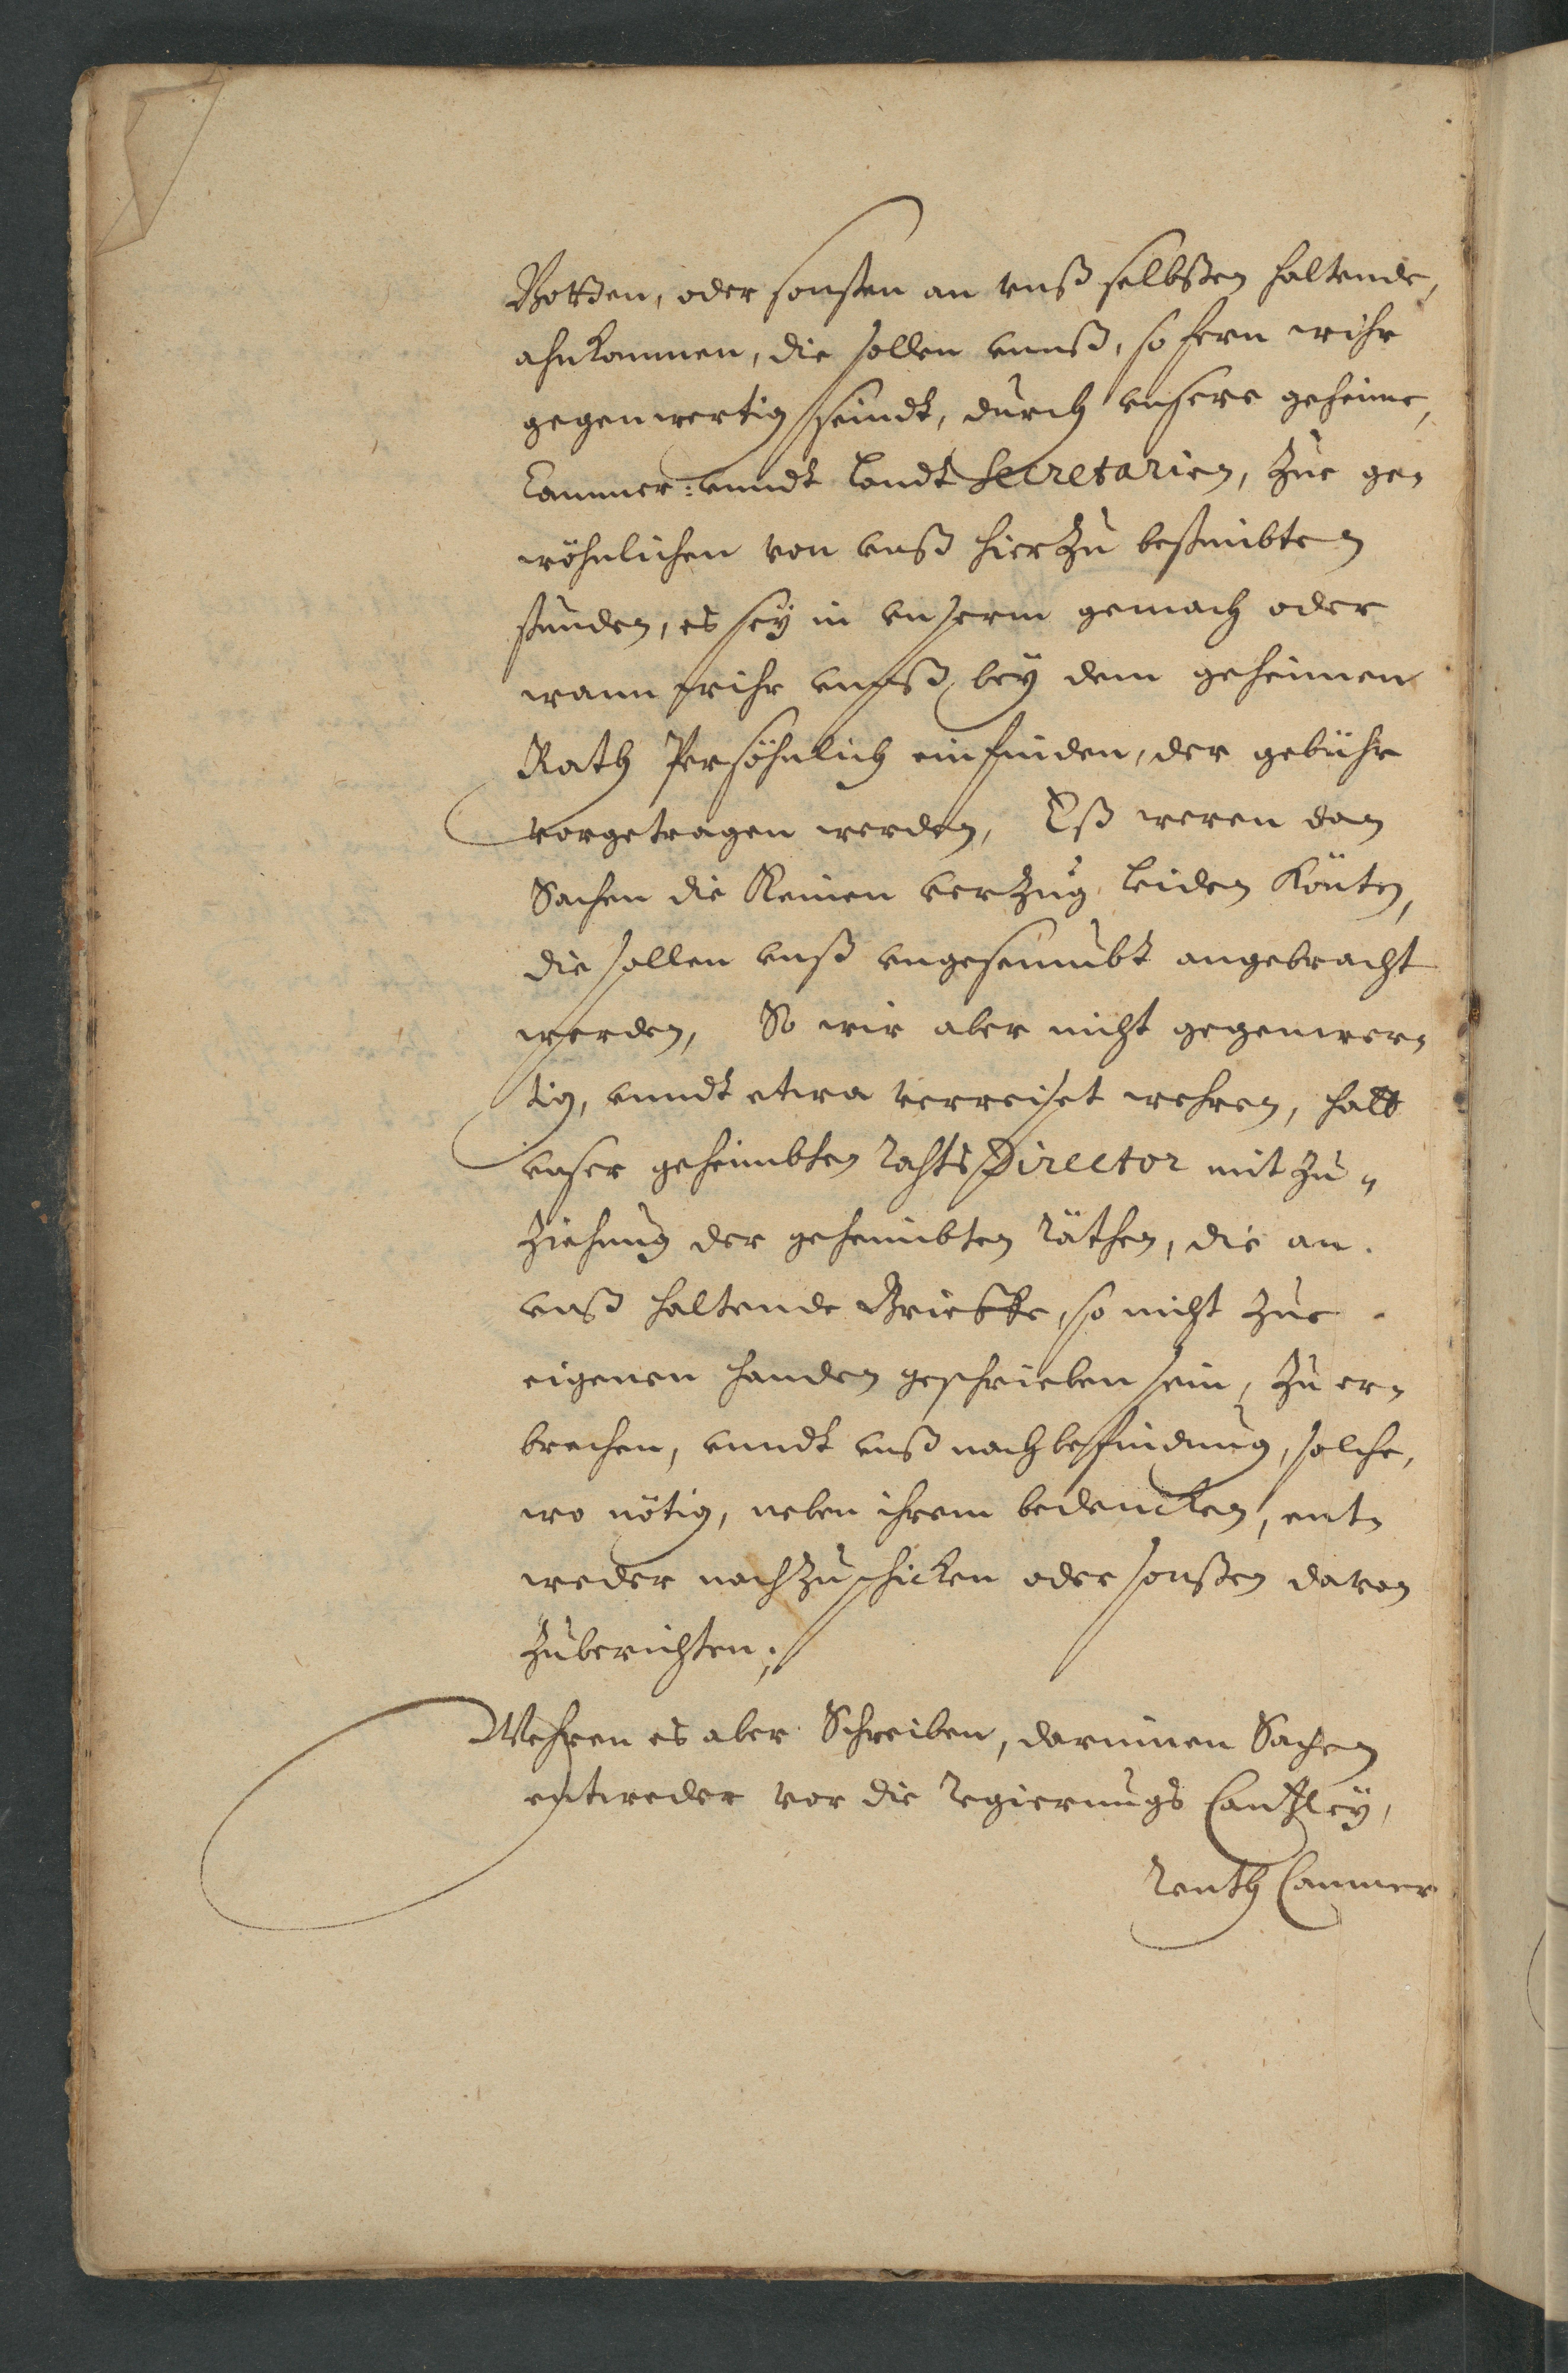 Botten, oder sonsten an vnß selbsten haltende,
ahnkommen, die sollen vnnß, so fern wihr
gegenwertig seindt, durch vnsere geheime,
Cammer= vnndt Landt Secretarien, zue ge-
wöhnlichen von vnß hierzu bestimbten
stunden, es sey in vnserm gemach oder
wann wihr vnnß bey dem geheimen
Rath Persöhnlich einfinden, der gebühr
vorgetragen werden, Eß weren dan
Sachen die Keinen verzug leiden Könten,
die sollen vnß vngeseumbt angebracht
werden, So wir aber nicht gegenwer-
tig, vnndt etwa verreiset wehren, hatt
vnser geheimbten Rahts Director mit zu-
ziehung der geheimbten Räthen, die an
vnß haltende Brieffe, so nicht zue
eigenen handen geschrieben sein, zu er-
brechen, vnndt vnß nach befindung, solche,
wo nötig, neben ihrem bedencken, ent-
weder nachzuschicken oder sonsten davon
zuberichten;
Wehren es aber Schreiben, darinnen Sachen
entweder vor die Regierungs Cantzley,
Renth Cammer